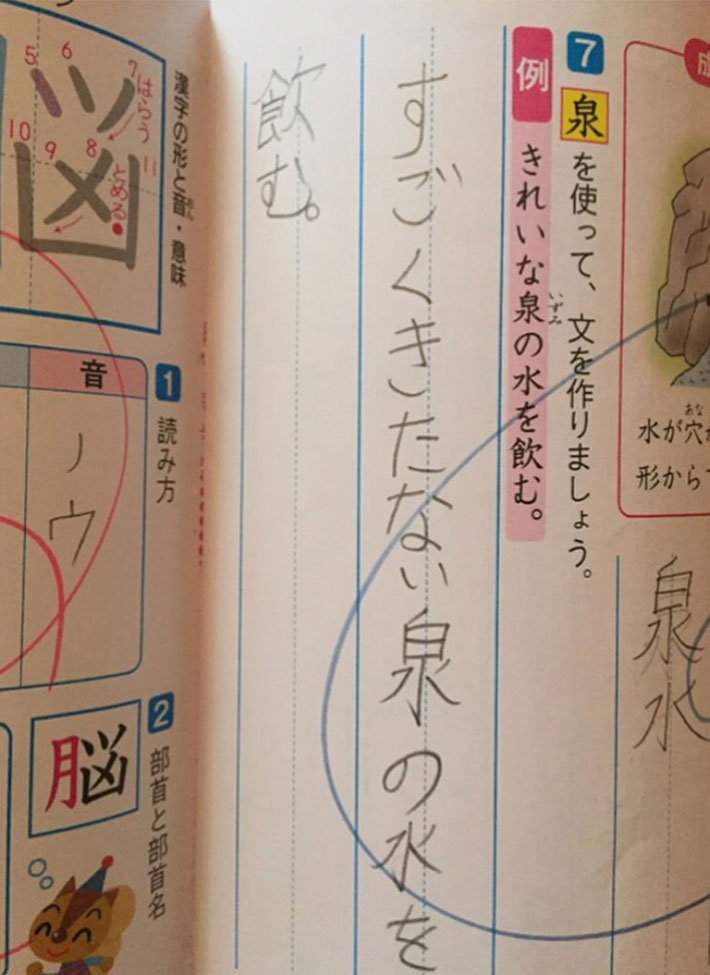 成
水が穴
あな
形から
泉水
7 泉を使って、文を作りましょう。
例 きれいな泉の水を飲む。
いずみ
すごくきたない泉の水を
飲む。
漢字の形と音・意味
おん
5
6
7
はらう
10
9
8
11
とめる
1 読み方
音
ノウ
2 部首と部首名
脳